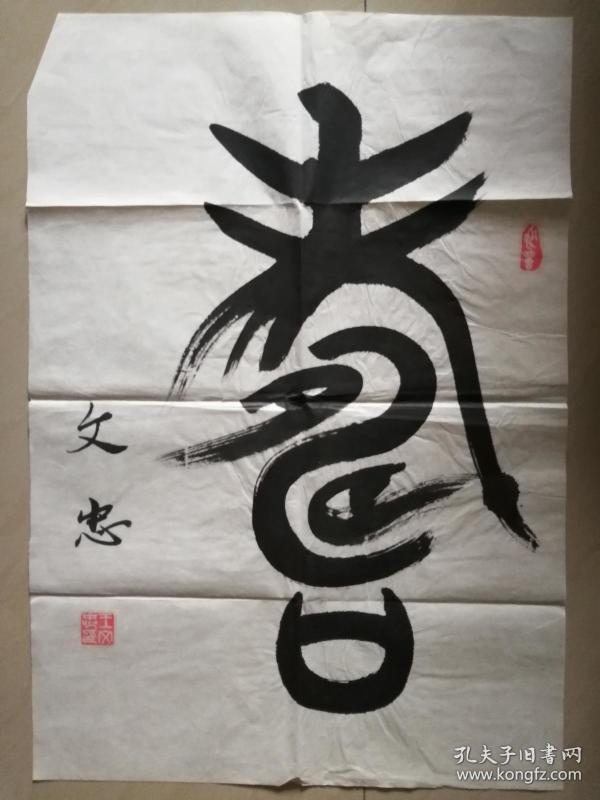 壽
文忠
孔夫子旧書网
www.kongfz.com